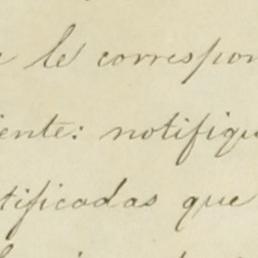 le correspon
iente: notifiqu
tificadas que